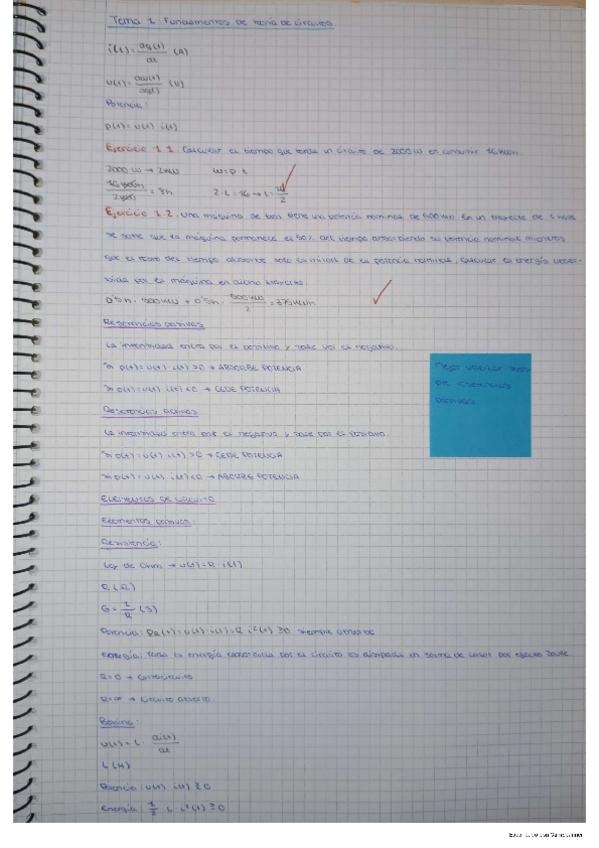 Tema 1: Fundamentos de teoría de circuitos.
i(t) = dq(t)/dt (A)
u(t) = dw(t)/dq(t) (V)
Potencia:
p(t) = u(t) · i(t)
Ejercicio 1.1. Calcular el tiempo que tarda un circuito de 2000 W en consumir 16 kWh.
2000 W → 2 kW w = p · t
16 kWh/2 kW = 8h 2 · t = 16 → t = 16/2
Ejercicio 1.2. Una máquina de tren tiene una potencia nominal de 500 kW. En un trayecto de 1 hora
se sabe que la máquina permanece el 50% del tiempo absorbiendo su potencia nominal mientras
que el resto del tiempo absorbe solo la mitad de la potencia nominal. Calcular la energía
por la máquina en dicho trayecto.
0'5h · 500 kW + 0'5h · 500 kW/2 = 375 kWh
Referencias pasivas
La intensidad entra por el positivo y sale por el negativo.
Si p(t) = u(t) · i(t) > 0 → ABSORBE POTENCIA
Si p(t) = u(t) · i(t) < 0 → CEDE POTENCIA
Referencias activas
La intensidad entra por el negativo y sale por el positivo.
Si p(t) = u(t) · i(t) > 0 → CEDE POTENCIA
Si p(t) = u(t) · i(t) < 0 → ABSORBE POTENCIA
Mejor utilizar
de referencias
pasivas.
Elementos de circuito
Elementos pasivos:
Resistencia:
Ley de Ohm → u(t) = R · i(t)
R (Ω)
G = 1/R (S)
Potencia: pR(t) = u(t) · i(t) = R · i²(t) ≥ 0 siempre absorbe
Energía: Toda la energía consumida por el circuito es disipada en forma de calor por efecto Joule.
R = 0 → Cortocircuito
R = ∞ → Circuito abierto.
Bobina:
u(t) = L · di(t)/dt
L (H)
Potencia: u(t) · i(t) ≷ 0
Energía: 1/2 · L · i²(t) ≥ 0